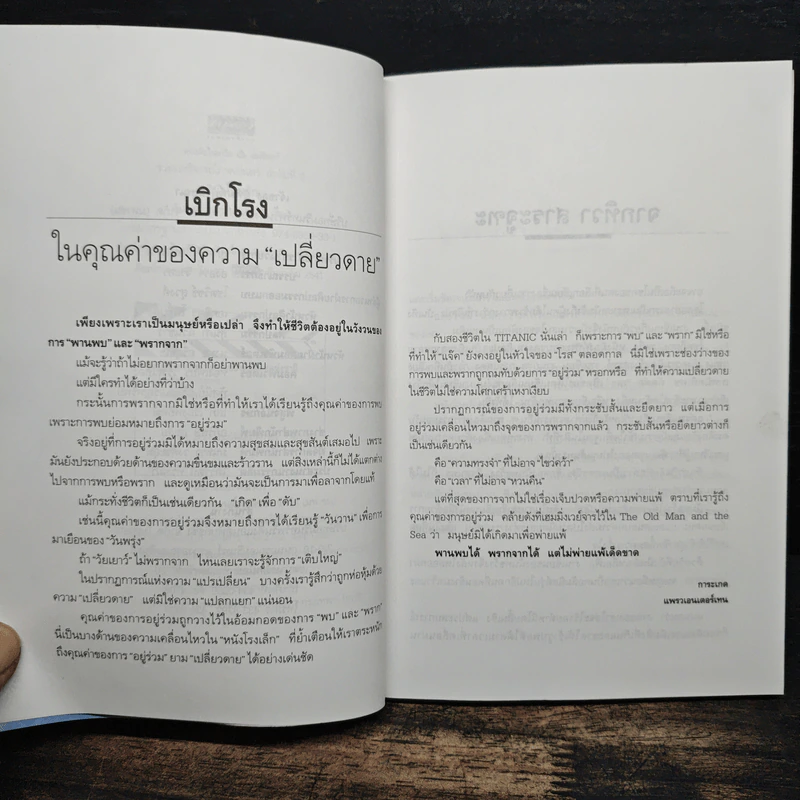 เบิกโรง
ในคุณค่าของความ “เปลี่ยวดาย”
เพียงเพราะเราเป็นมนุษย์หรือเปล่า จึงทำให้ชีวิตต้องอยู่ในวังวนของ
การ “พานพบ” และ “พรากจาก”
แม้จะรู้ว่าถ้าไม่อยากพรากจากก็อย่าพานพบ
แต่มีใครทำได้อย่างที่ว่าบ้าง
กระนั้นการพรากจากมิใช่หรือที่ทำให้เราได้เรียนรู้ถึงคุณค่าของการพบ
เพราะการพบย่อมหมายถึงการ “อยู่ร่วม”
จริงอยู่ที่การอยู่ร่วมมิได้หมายถึงความสุขสมและสุขสันต์เสมอไป เพราะ
มันยังประกอบด้วยด้านของความขื่นขมและร้าวราน แต่สิ่งเหล่านี้ก็ไม่ได้แตกต่าง
ไปจากการพบหรือพราก และดูเหมือนว่ามันจะเป็นการมาเพื่อลาจากโดยแท้
แม้กระทั่งชีวิตก็เป็นเช่นเดียวกัน “เกิด” เพื่อ “ดับ”
เช่นนี้คุณค่าของการอยู่ร่วมจึงหมายถึงการได้เรียนรู้ “วันวาน” เพื่อการ
มาเยือนของ “วันพรุ่ง”
ถ้า “วัยเยาว์” ไม่พรากจาก ไหนเลยเราจะรู้จักการ “เติบใหญ่”
ในปรากฏการณ์แห่งความ “แปรเปลี่ยน” บางครั้งเรารู้สึกว่าถูกห่อหุ้มด้วย
ความ “เปลี่ยวดาย” แต่มิใช่ความ “แปลกแยก” แน่นอน
คุณค่าของการอยู่ร่วมถูกวางไว้ในอ้อมกอดของการ “พบ” และ “พราก”
นี่เป็นบางด้านของความเคลื่อนไหวใน “หนังโรงเล็ก” ที่ย้ำเตือนให้เราตระหนัก
ถึงคุณค่าของการ “อยู่ร่วม” ยาม “เปลี่ยวดาย” ได้อย่างเด่นชัด
กับสองชีวิตใน TITANIC นั่นเล่า ก็เพราะการ “พบ” และ “พราก” มิใช่หรือ
ที่ทำให้ “แจ็ค” ยังคงอยู่ในหัวใจของ “โรส” ตลอดกาล นี่มิใช่เพราะช่องว่างของ
การพบและพรากถูกถมทับด้วยการ “อยู่ร่วม” หรอกหรือ ที่ทำให้ความเปลี่ยวดาย
ในชีวิตไม่ใช่ความโศกเศร้าเหงาเงียบ
ปรากฏการณ์ของการอยู่ร่วมมีทั้งกระชับสั้นและยืดยาว แต่เมื่อการ
อยู่ร่วมเคลื่อนไหวมาถึงจุดของการพรากจากแล้ว กระชับสั้นหรือยืดยาวต่างก็
เป็นเช่นเดียวกัน
คือ “ความทรงจำ” ที่ไม่อาจ “ไขว่คว้า”
คือ “เวลา” ที่ไม่อาจ “หวนคืน”
แต่ที่สุดของการจากไม่ใช่เรื่องเจ็บปวดหรือความพ่ายแพ้ ตราบที่เรารู้ถึง
คุณค่าของการอยู่ร่วม คล้ายดังที่เฮมมิ่งเวย์จารไว้ใน The Old Man and the
Sea ว่า มนุษย์มิได้เกิดมาเพื่อพ่ายแพ้
พานพบได้ พรากจากได้ แต่ไม่พ่ายแพ้เด็ดขาด
การะเกด
แพรวเอนเตอร์เทน